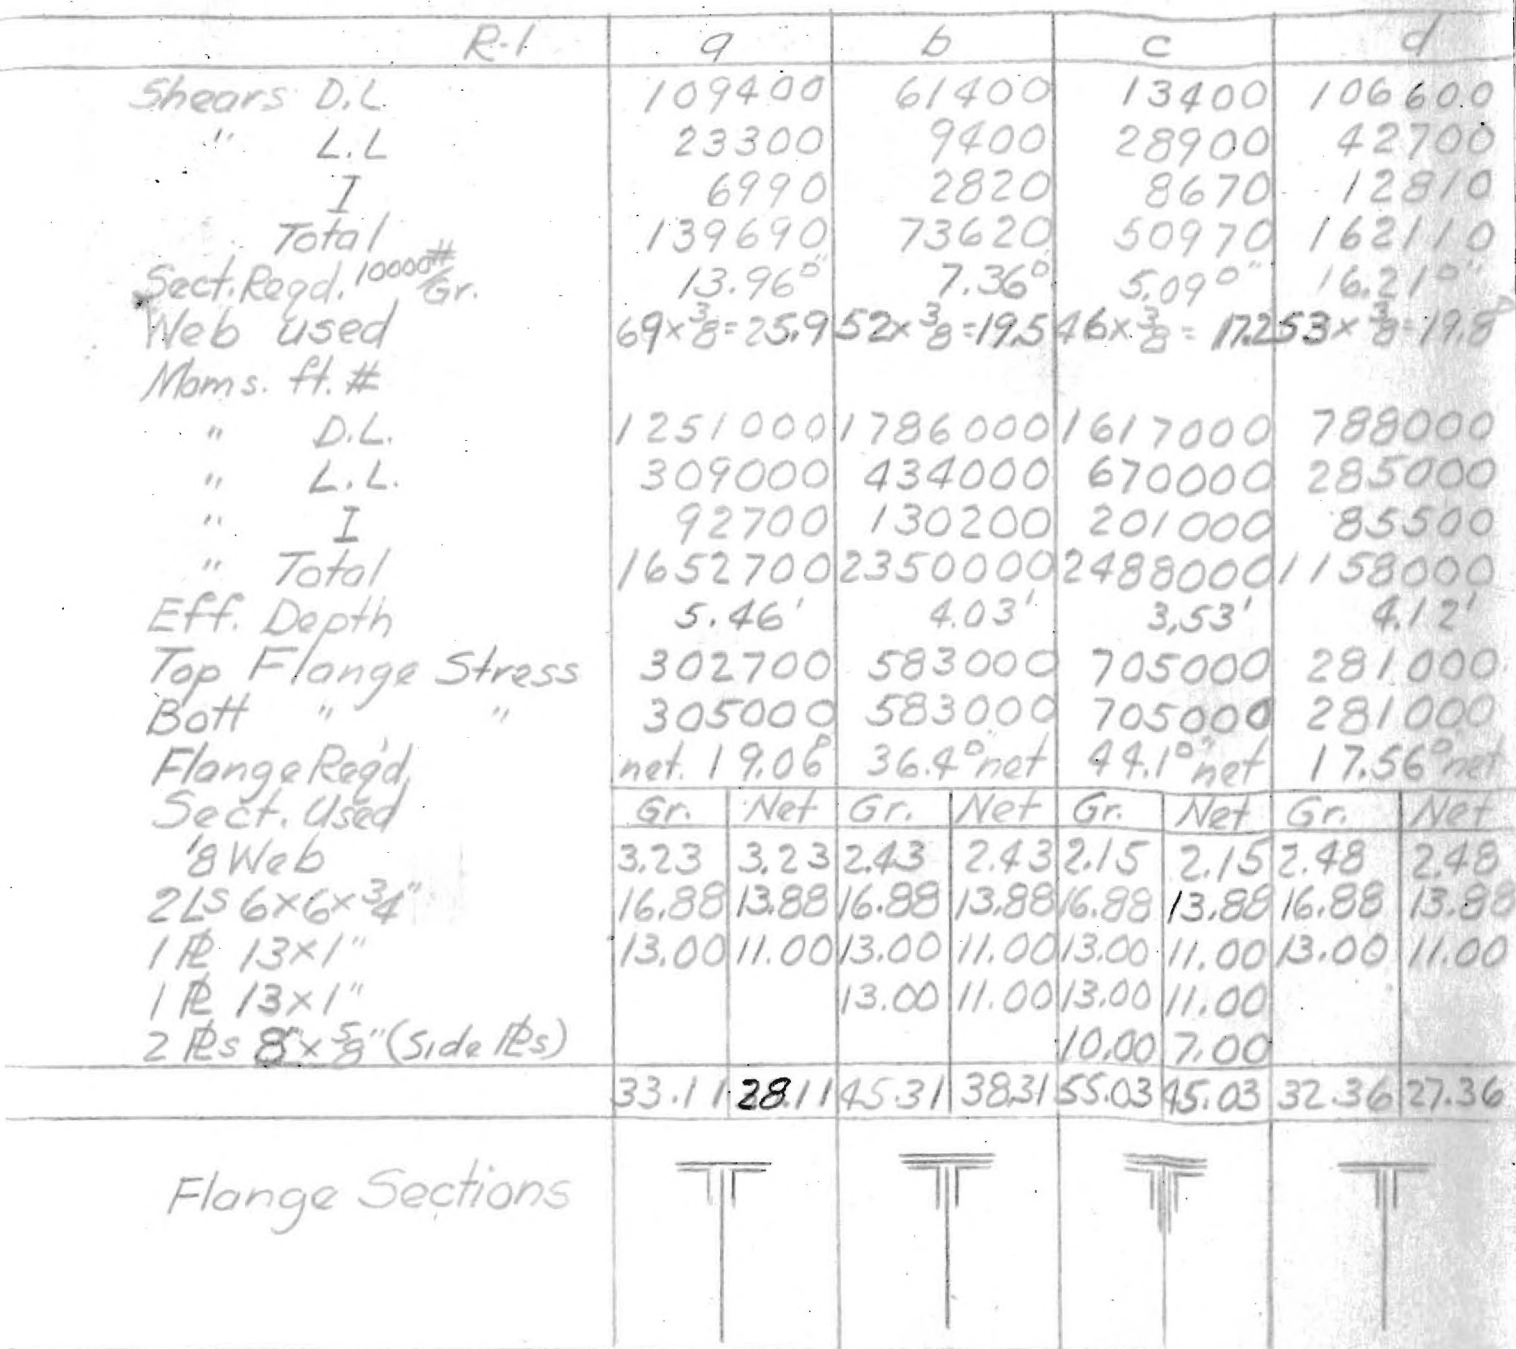 R-1 a b c d
Shears D.L. 109400 61400 13400 106600
" L.L 23300 9400 28900 42700
I 6990 2820 8670 12810
Total 139690 73620 50970 162110
Sect. Reqd. 10000#/Gr. 13.96□" 7.36□" 5.09□" 16.21□"
Web used 69×3/8=25.9 52×3/8=19.5 46×3/8=17.2 53×3/8=19.8□
Moms. ft. #
" D.L. 1251000 1786000 1617000 788000
" L.L. 309000 434000 670000 285000
" I 92700 130200 201000 85500
" Total 1652700 2350000 2488000 1158000
Eff. Depth 5.46' 4.03' 3.53' 4.12'
Top Flange Stress 302700 583000 705000 281000
Bott " " 305000 583000 705000 281000
Flange Reqd. net. 19.06□" 36.4□" net 44.1□" net 17.56□" net
Sect. Used Gr. Net Gr. Net Gr. Net Gr. Net
1/8 Web 3.23 3.23 2.43 2.43 2.15 2.15 2.48 2.48
2 Ls 6×6×3/4" 16.88 13.88 16.88 13.88 16.88 13.88 16.88 13.88
1 PL 13×1" 13.00 11.00 13.00 11.00 13.00 11.00 13.00 11.00
1 PL 13×1" 13.00 11.00 13.00 11.00
2 PLs 8"×5/8" (Side PLs) 10.00 7.00
33.11 28.11 45.31 38.31 55.03 45.03 32.36 27.36
Flange Sections